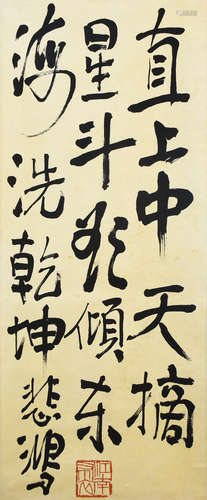 直上中天摘
星斗欲傾东
海洗乾坤悲鴻